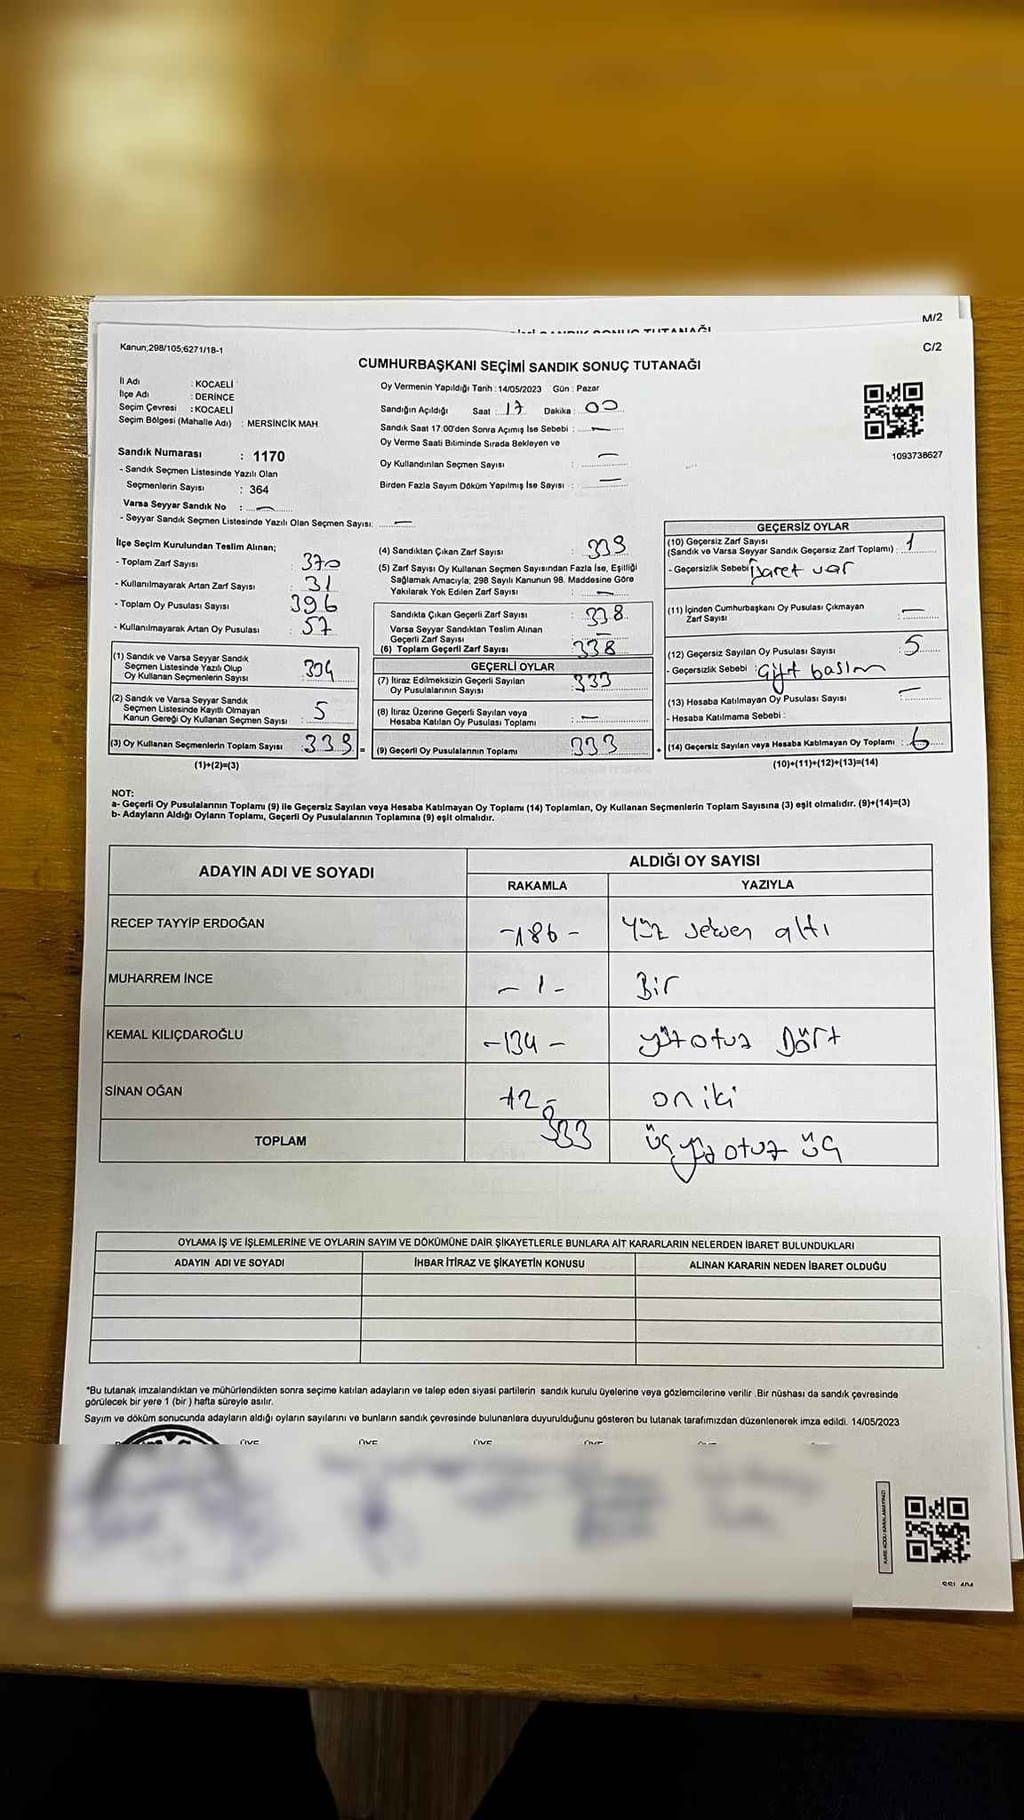 M/2
C/2
Kanun;298/105;6271/18-1
CUMHURBAŞKANI SEÇİMİ SANDIK SONUÇ TUTANAĞI
İl Adı : KOCAELİ
İlçe Adı : DERİNCE
Seçim Çevresi : KOCAELİ
Seçim Bölgesi (Mahalle Adı) : MERSİNCİK MAH
Sandık Numarası : 1170
- Sandık Seçmen Listesinde Yazılı Olan
Seçmenlerin Sayısı : 364
Varsa Seyyar Sandık No : —
- Seyyar Sandık Seçmen Listesinde Yazılı Olan Seçmen Sayısı: —
Oy Vermenin Yapıldığı Tarih : 14/05/2023 Gün : Pazar
Sandığın Açıldığı Saat : 17 Dakika : 00
Sandık Saat 17.00'den Sonra Açımış İse Sebebi : —
Oy Verme Saati Bitiminde Sırada Bekleyen ve
Oy Kullandırılan Seçmen Sayısı : —
Birden Fazla Sayım Döküm Yapılmış İse Sayısı : —
1093738627
İlçe Seçim Kurulundan Teslim Alınan;
- Toplam Zarf Sayısı : 370
- Kullanılmayarak Artan Zarf Sayısı : 31
- Toplam Oy Pusulası Sayısı : 396
- Kullanılmayarak Artan Oy Pusulası : 57
(1) Sandık ve Varsa Seyyar Sandık
Seçmen Listesinde Yazılı Olup
Oy Kullanan Seçmenlerin Sayısı : 334
(2) Sandık ve Varsa Seyyar Sandık
Seçmen Listesinde Kayıtlı Olmayan
Kanun Gereği Oy Kullanan Seçmen Sayısı : 5
(3) Oy Kullanan Seçmenlerin Toplam Sayısı : 339 =
(1)+(2)=(3)
(4) Sandıktan Çıkan Zarf Sayısı : 339
(5) Zarf Sayısı Oy Kullanan Seçmen Sayısından Fazla İse, Eşitliği
Sağlamak Amacıyla; 298 Sayılı Kanunun 98. Maddesine Göre
Yakılarak Yok Edilen Zarf Sayısı : —
Sandıkta Çıkan Geçerli Zarf Sayısı : 338
Varsa Seyyar Sandıktan Teslim Alınan
Geçerli Zarf Sayısı : —
(6) Toplam Geçerli Zarf Sayısı : 338
GEÇERLİ OYLAR
(7) İtiraz Edilmeksizin Geçerli Sayılan
Oy Pusulalarının Sayısı : 333
(8) İtiraz Üzerine Geçerli Sayılan ve
Hesaba Katılan Oy Pusulası Toplamı : —
(9) Geçerli Oy Pusulalarının Toplamı : 333 +
GEÇERSİZ OYLAR
(10) Geçersiz Zarf Sayısı
(Sandık ve Varsa Seyyar Sandık Geçersiz Zarf Toplamı) : 1
- Geçersizlik Sebebi : İşaret var
(11) İçinden Cumhurbaşkanı Oy Pusulası Çıkmayan
Zarf Sayısı : —
(12) Geçersiz Sayılan Oy Pusulası Sayısı : 5
- Geçersizlik Sebebi : Çift basım
(13) Hesaba Katılmayan Oy Pusulası Sayısı : —
- Hesaba Katılmama Sebebi :
(14) Geçersiz Sayılan veya Hesaba Katılmayan Oy Toplamı : 6
(10)+(11)+(12)+(13)=(14)
NOT:
a- Geçerli Oy Pusulalarının Toplamı (9) ile Geçersiz Sayılan veya Hesaba Katılmayan Oy Toplamı (14) Toplamları, Oy Kullanan Seçmenlerin Toplam Sayısına (3) eşit olmalıdır. (9)+(14)=(3)
b- Adayların Aldığı Oyların Toplamı, Geçerli Oy Pusulalarının Toplamına (9) eşit olmalıdır.
ADAYIN ADI VE SOYADI
ALDIĞI OY SAYISI
RAKAMLA YAZIYLA
RECEP TAYYİP ERDOĞAN -186- Yüz seksen altı
MUHARREM İNCE - 1 - Bir
KEMAL KILIÇDAROĞLU -134 - yüz otuz Dört
SİNAN OĞAN 12 - on iki
TOPLAM 333 üç yüz otuz üç
OYLAMA İŞ VE İŞLEMLERİNE VE OYLARIN SAYIM VE DÖKÜMÜNE DAİR ŞİKAYETLERLE BUNLARA AİT KARARLARIN NELERDEN İBARET BULUNDUKLARI
ADAYIN ADI VE SOYADI İHBAR İTİRAZ VE ŞİKAYETİN KONUSU ALINAN KARARIN NEDEN İBARET OLDUĞU
*Bu tutanak imzalandıktan ve mühürlendikten sonra seçime katılan adayların ve talep eden siyasi partilerin sandık kurulu üyelerine veya gözlemcilerine verilir .Bir nüshası da sandık çevresinde
görülecek bir yere 1 (bir ) hafta süreyle asılır.
Sayım ve döküm sonucunda adayların aldığı oyların sayılarını ve bunların sandık çevresinde bulunanlara duyurulduğunu gösteren bu tutanak tarafımızdan düzenlenerek imza edildi. 14/05/2023
ÜYE ÜYE ÜYE ÜYE